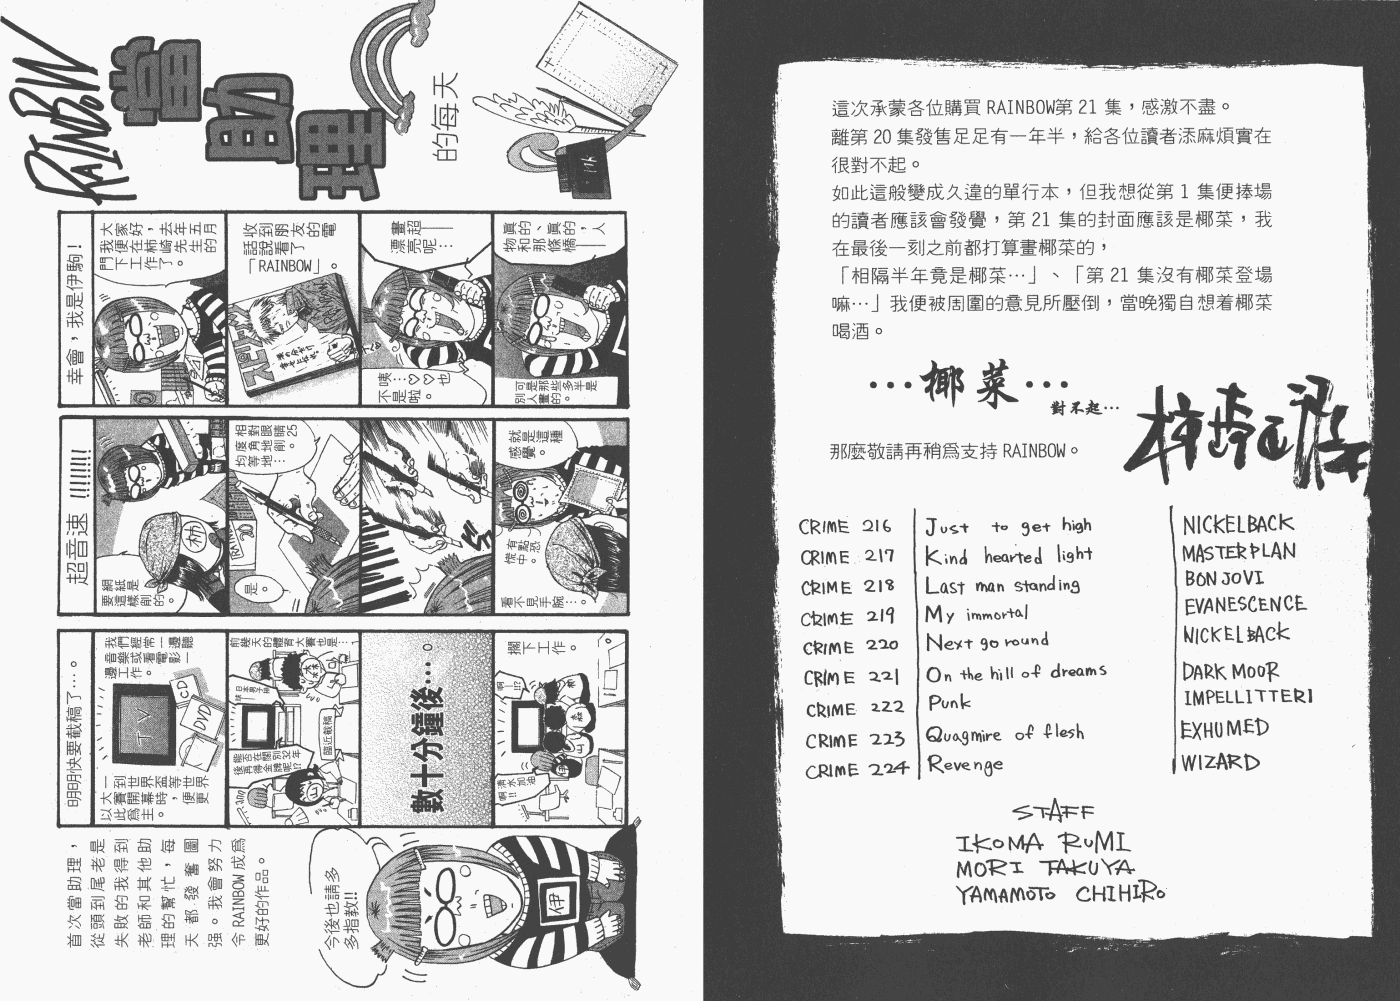 RAINBOW
當助理
的每天
ink
幸會，我是伊駒！
大家好，去年五月
我便在柿崎先生的
門下工作了。
收到朋友的電
話說看了
「RAINBOW」。
畫超——
漂亮呢…
咦…♡♡也
不是啦。
真的、真的，人
物和那條橋——
可是那些多半是
別人畫的。
超音速 !!!!!!!!
網紙是
要這樣削的。
柿
相對眼睛25
度角地削。
均等地…
是。
就是這種
感覺。
有點恐
慌中。
看不見手腕…。
明明快要截稿了…。
我們經常一邊聽
音樂或看電影一
邊工作。
TV
CD
DVD
一到世界盃等世界
大賽開幕時，便更
以此為主。
前幾天的體育大賽也是…
臨近截稿
數十分鐘後…。
擱下工作。
啊!!?
啊清水加油
!!
首次當助理，
從頭到尾老是
失敗的我得到
老師和其他助
理的幫忙，每
天都發奮圖
强。我會努力
令RAINBOW成為
更好的作品。
今後也請多
多指教!!
伊
這次承蒙各位購買 RAINBOW第 21 集，感激不盡。
離第 20 集發售足足有一年半，給各位讀者添麻煩實在
很對不起。
如此這般變成久違的單行本，但我想從第 1 集便捧場
的讀者應該會發覺，第 21 集的封面應該是椰菜，我
在最後一刻之前都打算畫椰菜的，
「相隔半年竟是椰菜…」、「第 21 集沒有椰菜登場
嘛…」我便被周圍的意見所壓倒，當晚獨自想着椰菜
喝酒。
…椰菜…
對不起…
那麼敬請再稍為支持 RAINBOW。
CRIME 216 Just to get high NICKELBACK
CRIME 217 Kind hearted light MASTERPLAN
CRIME 218 Last man standing BON JOVI
CRIME 219 My immortal EVANESCENCE
CRIME 220 Next go round NICKELBACK
CRIME 221 On the hill of dreams DARK MOOR
CRIME 222 Punk IMPELLITTERI
CRIME 223 Quagmire of flesh EXHUMED
CRIME 224 Revenge WIZARD
STAFF
IKOMA RUMI
MORI TAKUYA
YAMAMOTO CHIHIRO